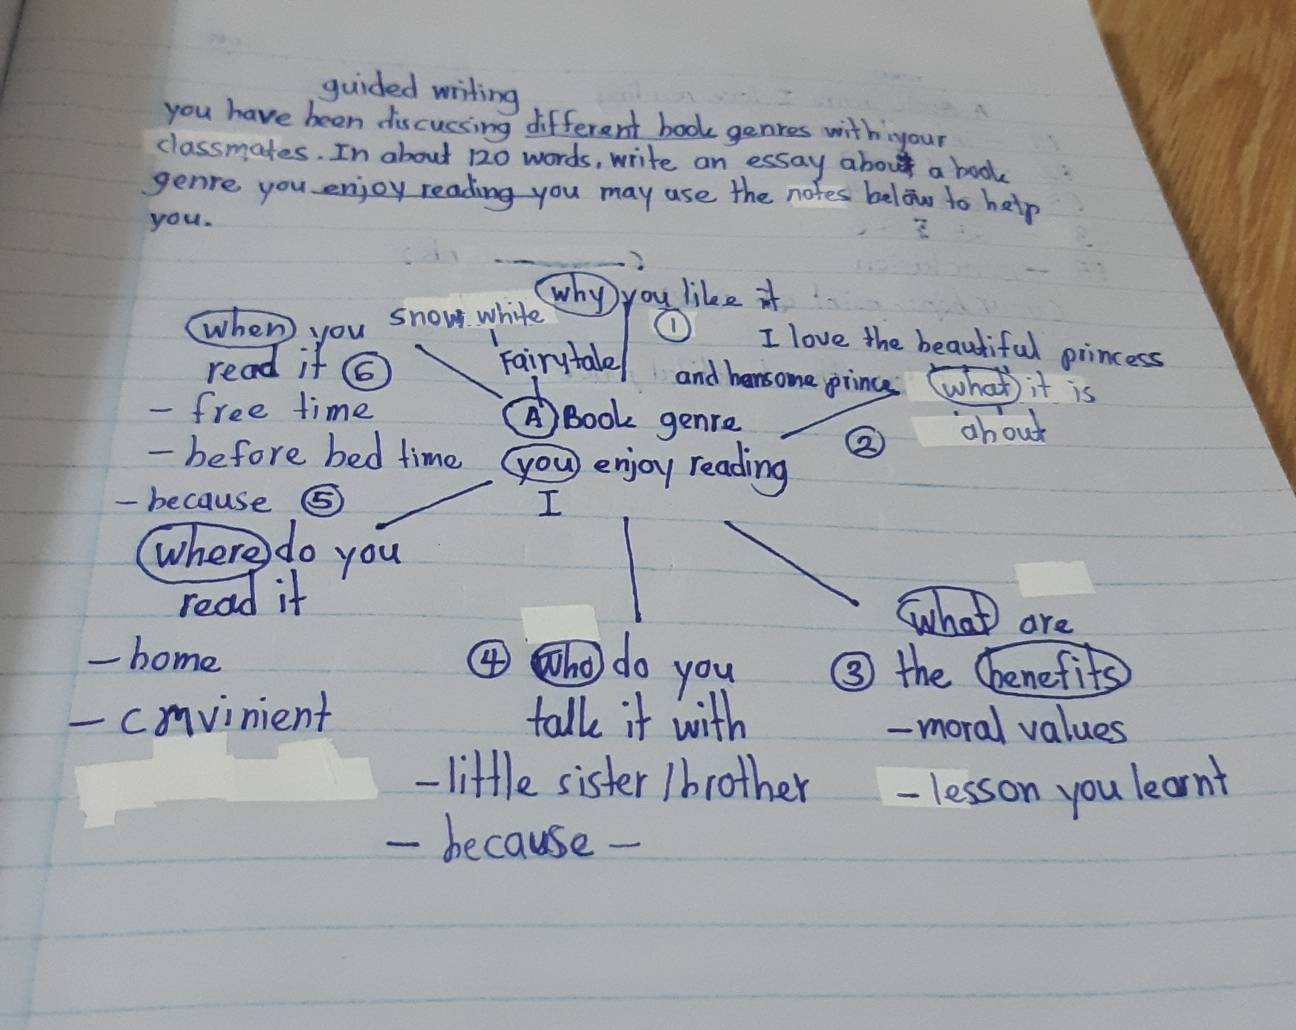 guided writing
you have been discussing different book genres with your
classmates. In about 120 words, write an essay about a book
genre you enjoy reading you may use the notes below to help
you.
why you like it
①
snow white
Fairytale
I love the beautiful princess
and hansome prince
A Book genre
you enjoy reading
I
what it is
about
②
what are
③ the benefits
- moral values
- lesson you learnt
④ who do you
talk it with
- little sister / brother
- because -
when you
read it ⑥
- free time
- before bed time
- because ⑤
where do you
read it
- home
- convinient